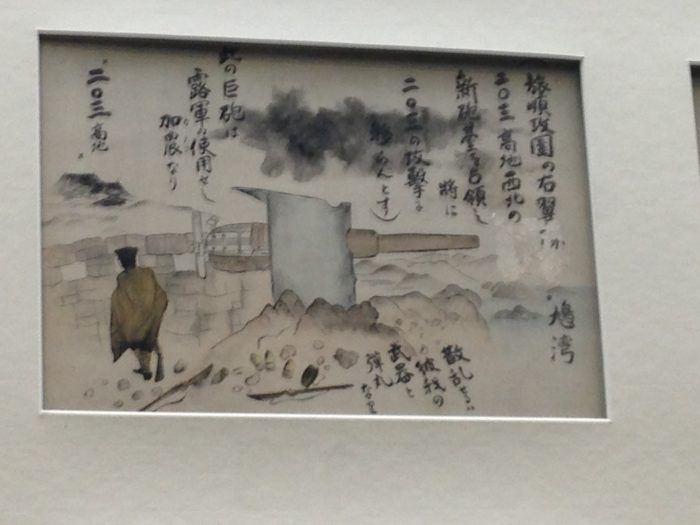 旅順攻囲の右翼が
二〇三高地西北の
新砲臺を占領し
将に
二〇三の攻撃に
移らんとす)
此の巨砲は
露軍の使用せし
加農なり
二〇三高地
鳩湾
散乱せるは
彼我の
武器と
弾丸なり